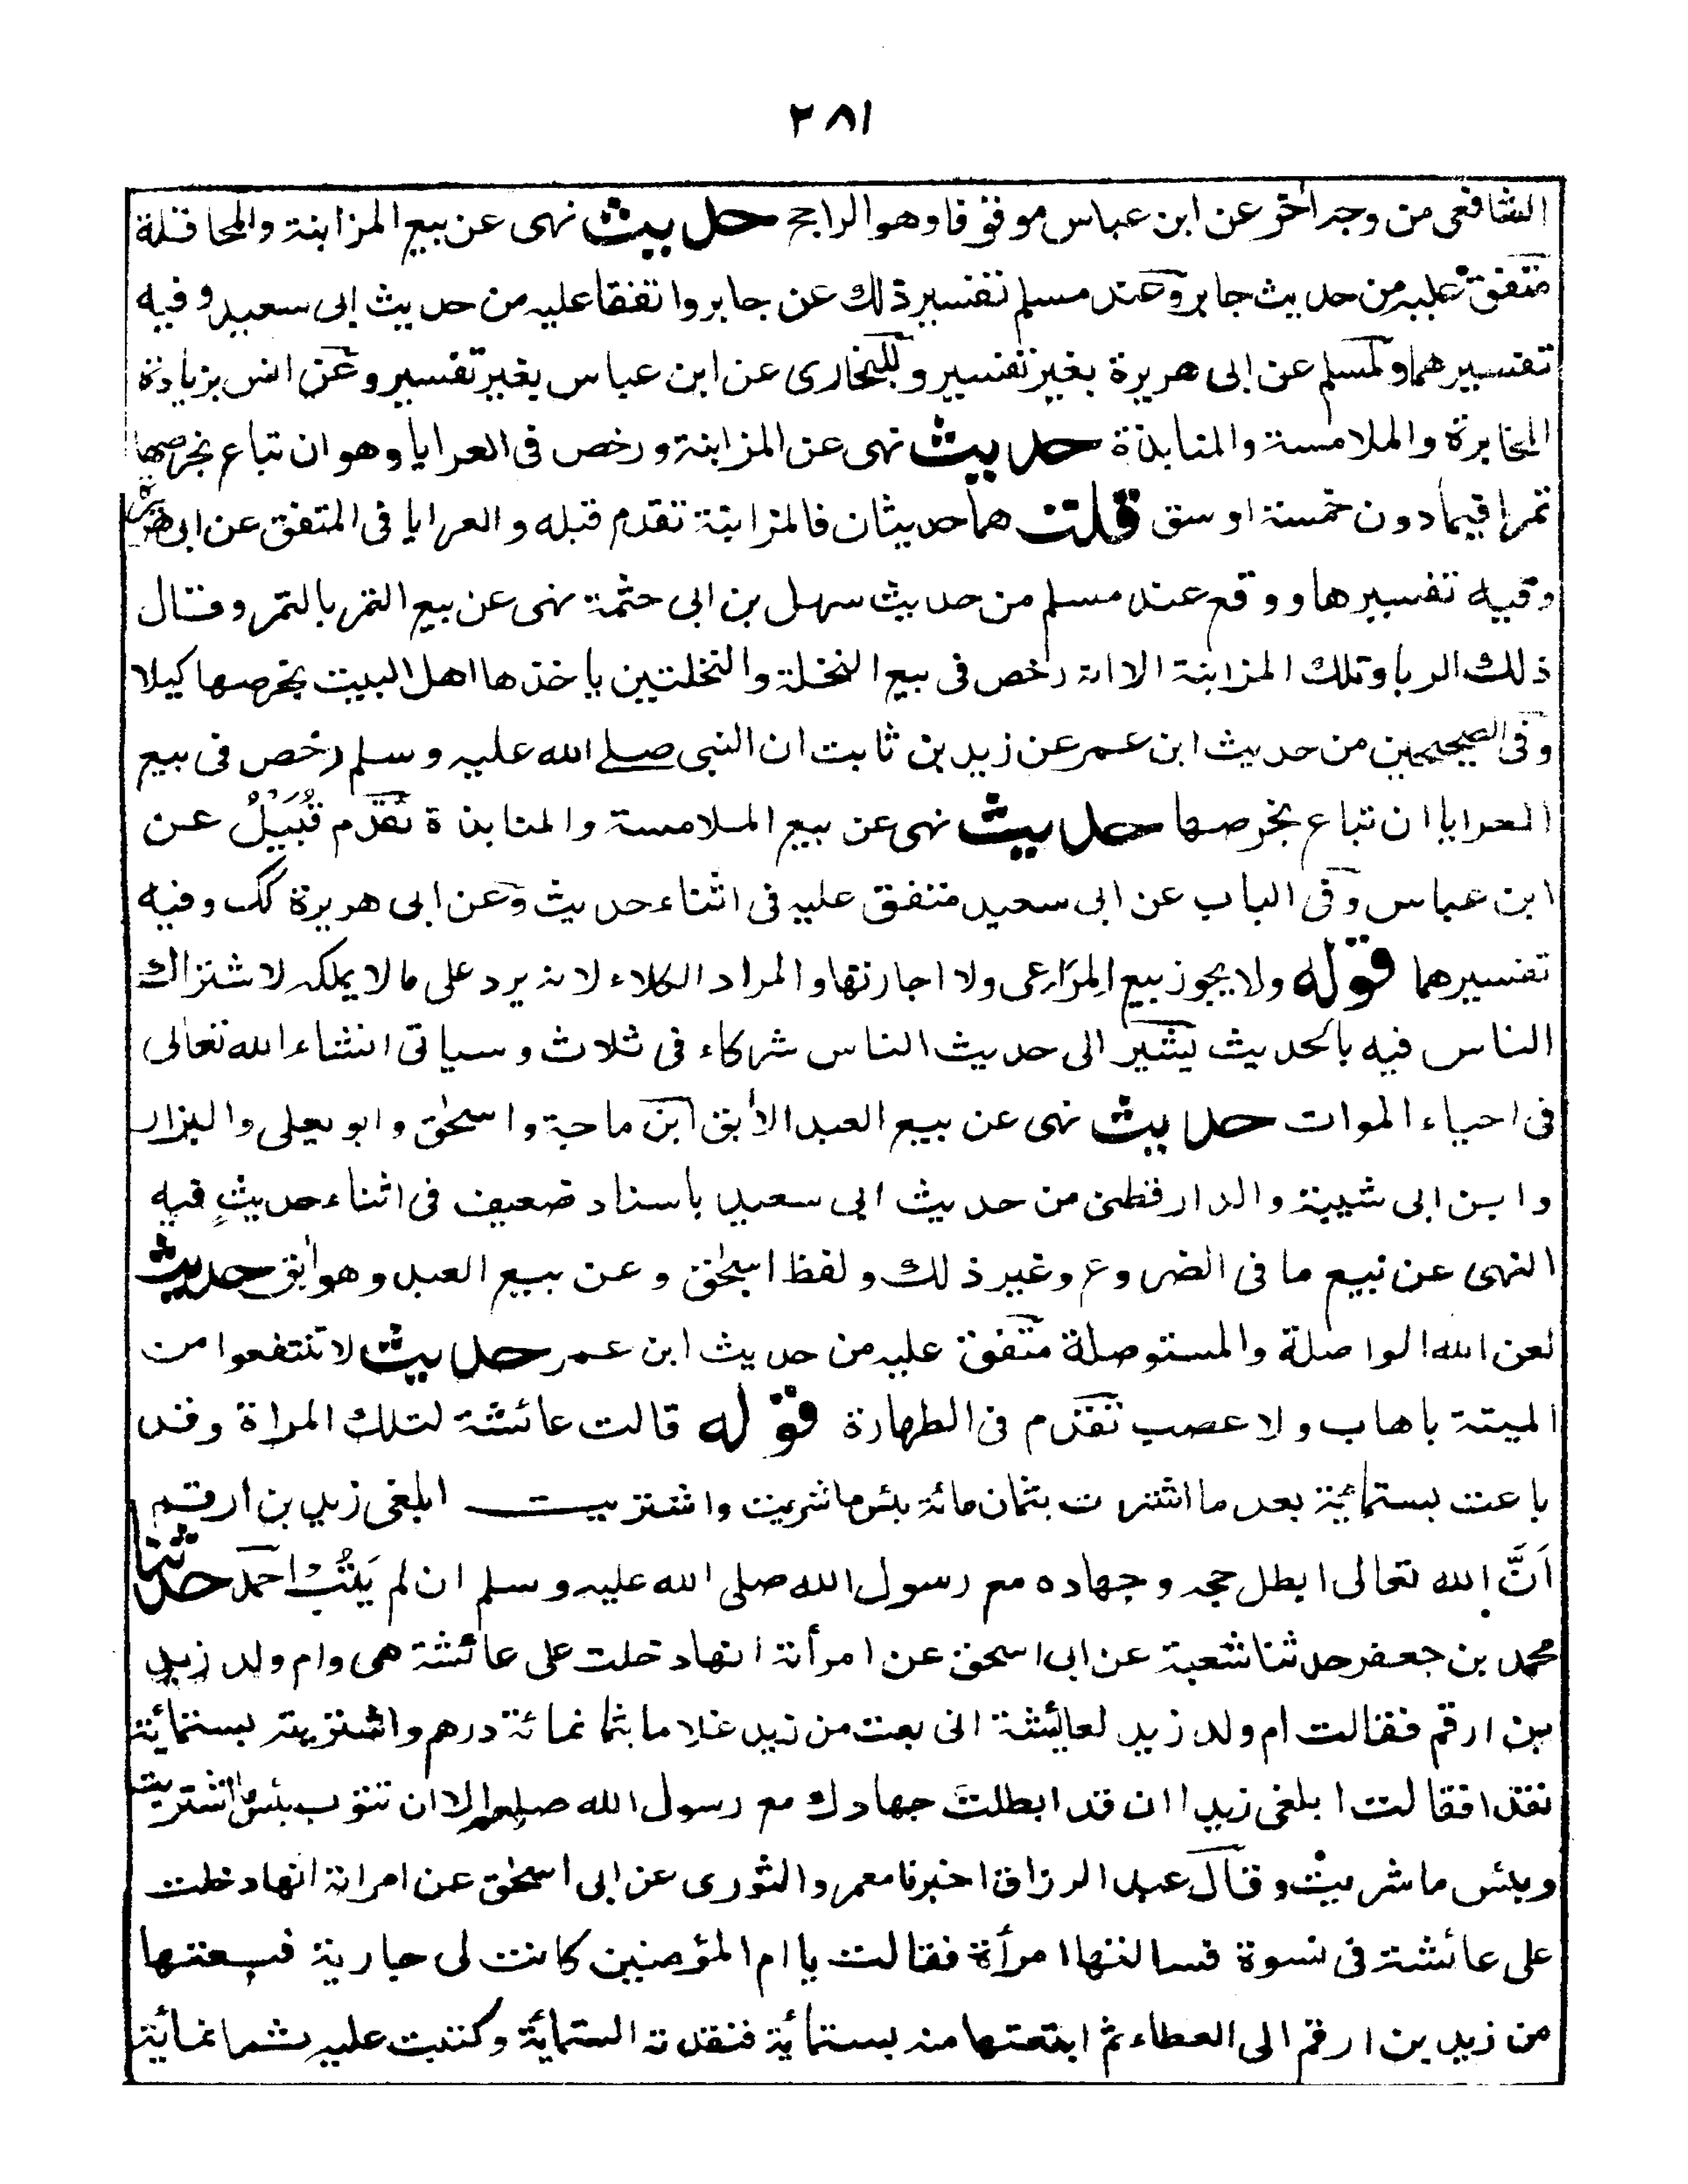 ٢٨١
الشافعى من وجه اخر عن ابن عباس موقوفا وهو الراجح حديث نهى عن بيع المزابنة والمحاقلة
متفق عليه من حديث جابر وعند مسلم تفسير ذلك عن جابر واتفقا عليه من حديث ابى سعيد وفيه
تفسيرهما ولمسلم عن ابى هريرة بغير تفسير وللبخارى عن ابن عباس بغير تفسير وعن انس بزيادة
المخابرة والملامسة والمنابذة حديث نهى عن المزابنة ورخص فى العرايا وهو ان تباع بخرصها
تمرا فيما دون خمسة اوسق قلت هما حديثان فالمزابنة تقدم قبله والعرايا فى المتفق عن ابى هريرة
وفيه تفسيرها ووقع عند مسلم من حديث سهل بن ابى حثمة نهى عن بيع الثمر بالتمر وقال
ذلك الربا وتلك المزابنة الا انه رخص فى بيع النخلة والنخلتين ياخذها اهل البيت بخرصها كيلا
وفى الصحيحين من حديث ابن عمر عن زيد بن ثابت ان النبى صلے الله عليه وسلم رخص فى بيع
العرايا ان تباع بخرصها حديث نهى عن بيع الملامسة والمنابذة تقدم قُبَيْلُ عن
ابن عباس وفى الباب عن ابى سعيد متفق عليه فى اثناء حديث وعن ابى هريرة كك وفيه
تفسيرهما قوله ولا يجوز بيع المَرَاعى ولا اجارتها والمراد الكلاء لانه يرد على ما لا يملكه لاشتراك
الناس فيه بالحديث يشير الى حديث الناس شركاء فى ثلاث وسياتى انشاء الله تعالى
فى احياء الموات حديث نهى عن بيع العبد الآبق ابن ماجة واسحٰق وابو يعلى والبزار
وابن ابى شيبة والدارقطنى من حديث ابى سعيد باسناد ضعيف فى اثناء حديثٍ فيه
النهى عن بيع ما فى الضروع وغير ذلك ولفظ اسحٰق وعن بيع العبد وهو اٰبق حديث
لعن الله الواصلة والمستوصلة متفق عليه من حديث ابن عمر حديث لا تنتفعوا من
الميتة باهاب ولا عصب تقدم فى الطهارة قوله قالت عائشة لتلك المراة وقد
باعت بستمائة بعد ما اشترت بثمان مائة بئس ما شريت واشتريت ابلغى زيد بن ارقم
اَنَّ الله تعالى ابطل حجه وجهاده مع رسول الله صلى الله عليه وسلم ان لم يَتُبْ احمد حدثنا
محمد بن جعفر حدثنا شعبة عن ابى اسحق عن امرأته انها دخلت على عائشة هى وام ولد زيد
بن ارقم فقالت ام ولد زيد لعائشة انى بعت من زيد غلاما بثمانمائة درهم واشتريته بستمائة
نقدا فقالت ابلغى زيدا ان قد ابطلتَ جهادك مع رسول الله صلعم الا ان تتوب بئس ما اشتريت
وبئس ما شريت وقال عبد الرزاق اخبرنا معمر والثورى عن ابى اسحٰق عن امراته انها دخلت
على عائشة فى نسوة فسالتها امرأة فقالت يا ام المؤمنين كانت لى جارية فبعتها
من زيد بن ارقم الى العطاء ثم ابتعتها منه بستمائة فنقدته الستمائة وكتبت عليه بثمانمائة